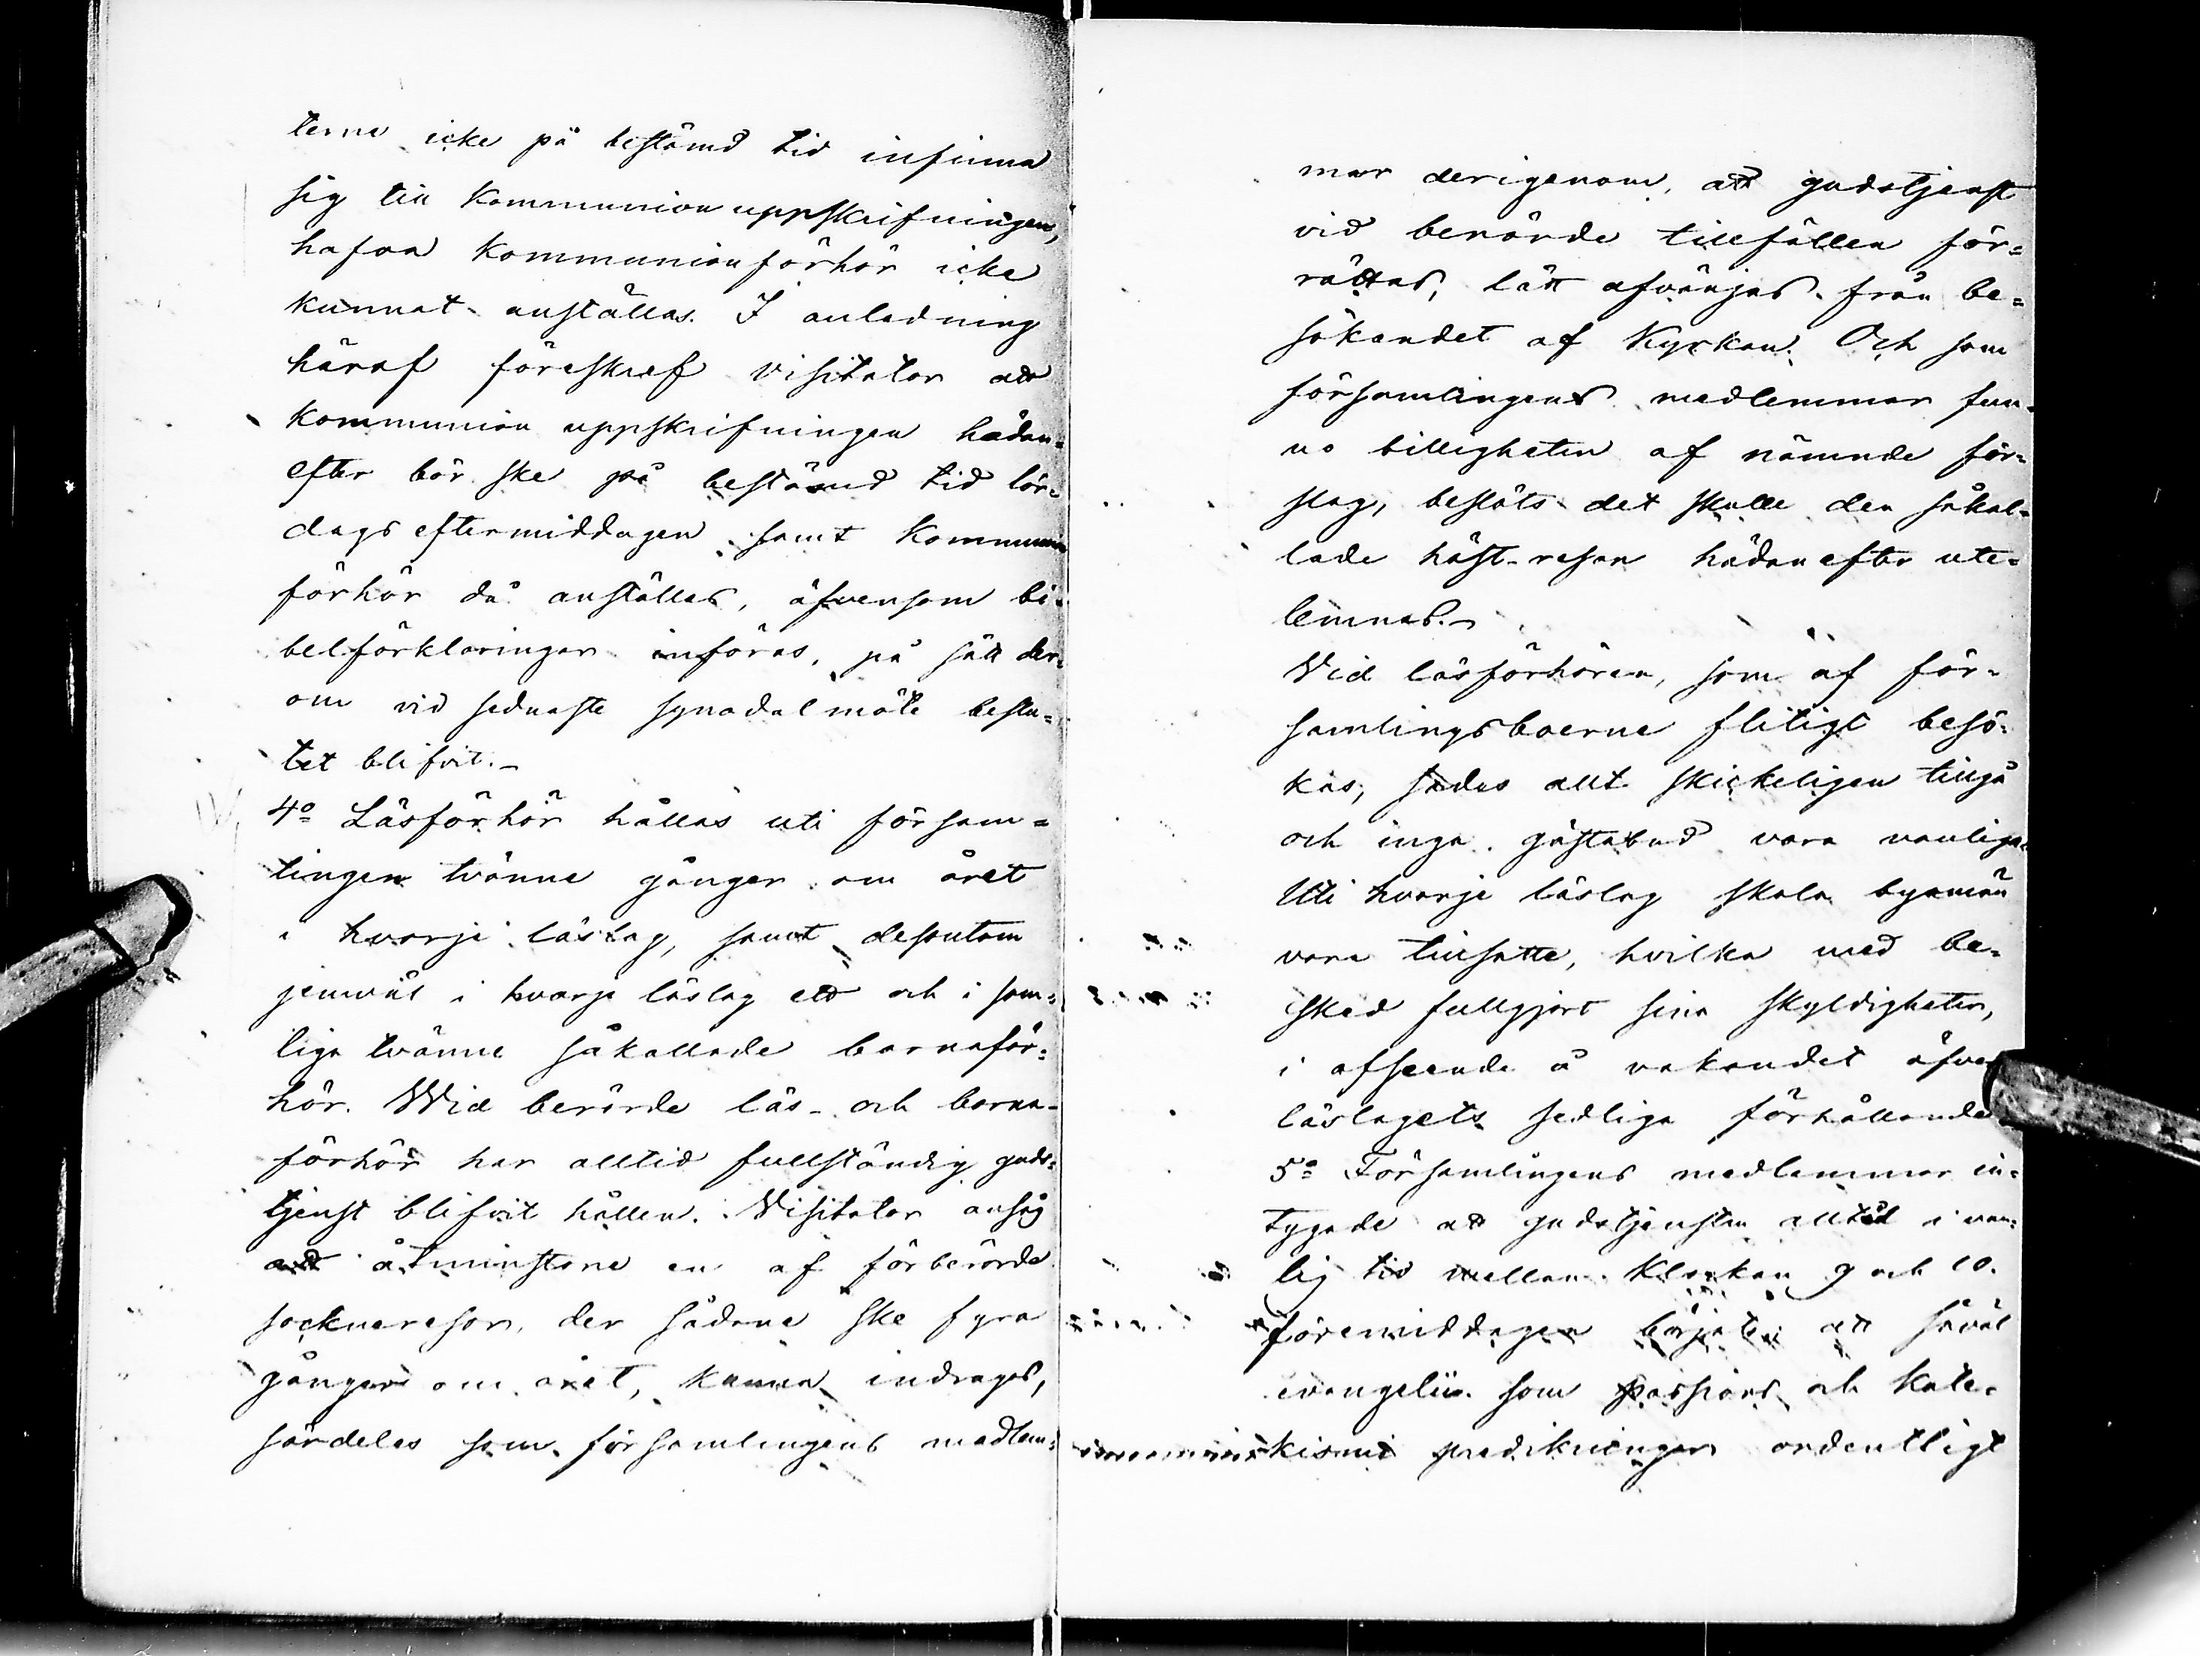 terne icke på bestämd tid infinna
sig till kommunion uppskrifningen,
hafva kommunionförhör icke
kunnat anställas. I anledning
häraf föreskref visitator att
kommunion uppskrifningen hädan=
efter bör ske på bestämd tid lör=
dags eftermiddagen samt kommunion
förhör då anställas, äfvensom bi=
belförklaringar införas, på sätt der=
om vid sednaste synodalmöte beslu=
tet blifvit.–
4o Läsförhör hållas uti försam=
lingen tvänne gånger om året
i hvarje läslag, samt dessutom
jemväl i hvarje läslag ett och i som=
liga tvänne såkallade barnaför=
hör. Wid berörde läs- och barna-
förhör har alltid fullständig guds=
tjenst blifvit hållen. Visitator ansåg
att åtminstone en af förberörde
sockneresor, der sådane ske fyra
gånger om året, kunna indragas,
särdeles som församlingens medlem=
mar derigenom, att gudstjenst
vid berörde tillfällen för=
rättas, lätt afvänjas från be=
sökandet af Kyrkan. Och som
församlingens medlemmar fun=
no billigheten af nämnde för=
slag, beslöts det skulle den såkal=
lade höst-resan hädanefter ute=
lemnas.–
Vid läsförhören, som af för=
samlingsboerne flitigt besö=
kas, sades allt skickeligen tillgå
och inga gästabud vara vanliga.
Uti hvarje läslag skola byamän
vara tillsatte, hvilka med be=
sked fullgjort sina skyldigheter,
i afseende å vakandet öfver
läslagets sedliga förhållande
5o Församlingens medlemmar in=
tygade att gudstjensten alltid i van=
lig tid mellan klockan 9 och 10.
föremiddagen börjates att såväl
evangelii som passions och kate=
kismi predikningar ordentligt